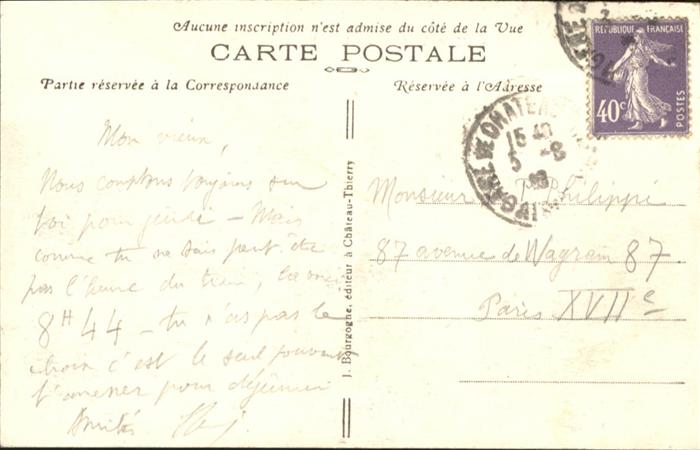 Aucune inscription n'est admise du côté de la Vue
CARTE POSTALE
Partie réservée à la Correspondance
Réservée à l'Adresse
REPUBLIQUE FRANÇAISE
40c
POSTES
GARE DE CHATEAU
15 40
5 -8
Mon vieux,
Nous comptons toujours sur
toi pour jeudi - Mais
comme tu ne sais peut être
pas l'heure du train,
8H44 - tu n'as pas le
choix c'est le seul pouvant
t'amener pour déjeuner
Amitiés
J. Bourgogne, éditeur à Château-Thierry
Monsieur Philippi
87 avenue de Wagram 87
Paris XVIIe